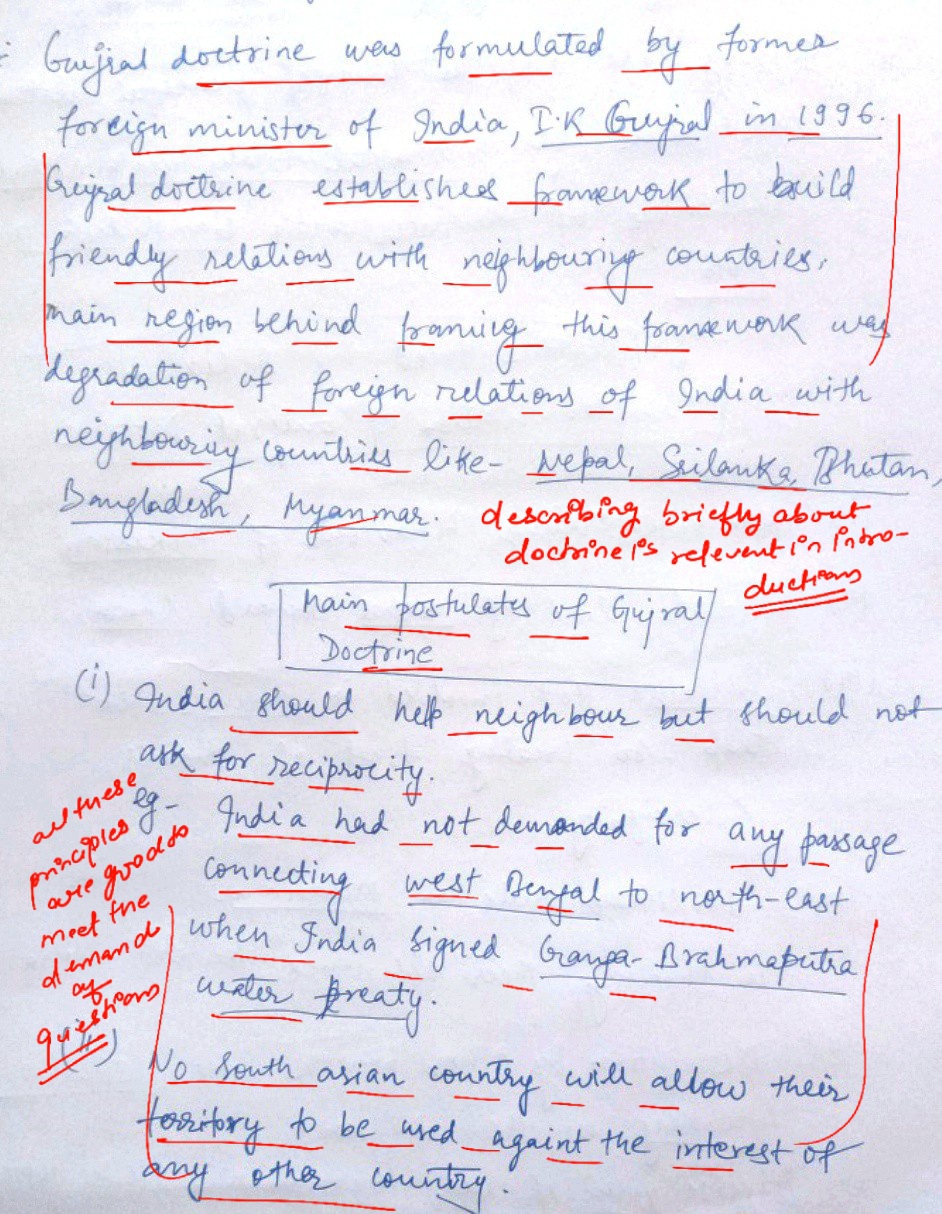 Gujral doctrine was formulated by former
foreign minister of India, I.K Gujral in 1996.
Gujral doctrine established framework to build
friendly relations with neighbouring countries.
main region behind framing this framework was
degradation of foreign relations of India with
neighbouring countries like- Nepal, Srilanka, Bhutan,
Bangladesh, Myanmar.
describing briefly about
doctrine is relevent in intro-
ductions
Main postulates of Gujral
Doctrine
(i) India should help neighbour but should not
ask for reciprocity.
eg- India had not demanded for any passage
connecting west Bengal to north-east
when India signed Ganga-Brahmaputra
water treaty.
all these
principles
are good to
meet the
demand
of
questions
(ii) No South asian country will allow their
territory to be used againt the interest of
any other country.